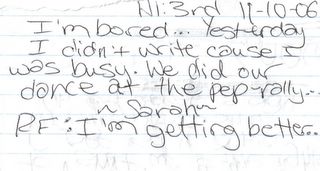 N1:3rd 11-10-06
I'm bored... Yesterday
I didn't write cause I
was busy. We did our
dance at the pep-rally...
~ Sarah~
RF: I'm getting better..